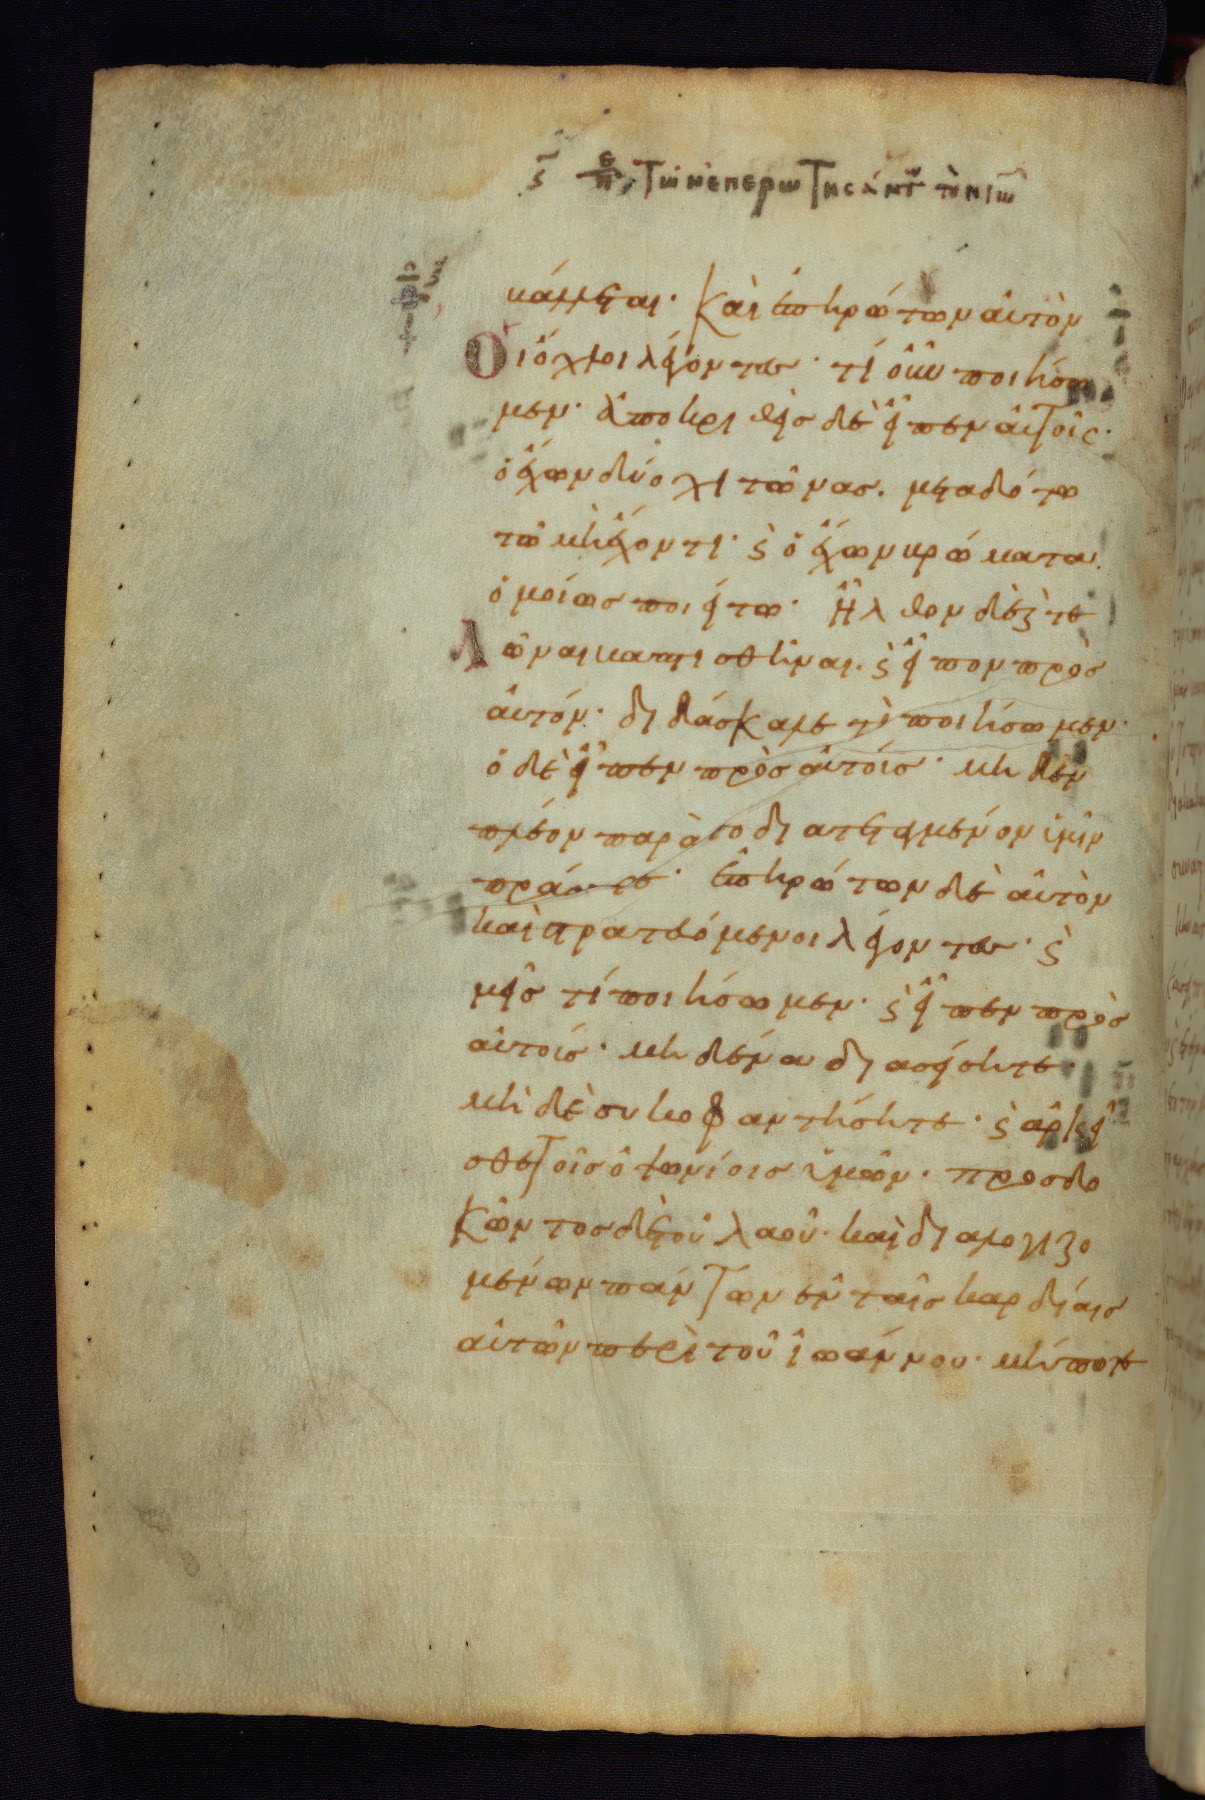 ϛ ε/π τῶν ἐπερωτησάντ τὸν ιω
βάλλεται· Καὶ ἐπηρώτων αὐτὸν
Οἱ ὄχλοι λέγοντες· τί οὖν ποιήσω
μεν· ἀποκριθεὶς δὲ εἶπεν αὐτοῖς·
ὁ ἔχων δύο χιτῶνας. μεταδότω
τῶ μὴ ἔχοντι· ϗ ὁ ἔχων βρώματα.
ὁμοίως ποιείτω· ἦλθον δὲ ϗ τε
λῶναι βαπτισθῆναι. ϗ εἶπον πρὸς
αὐτόν· διδάσκαλε τί ποιήσωμεν·
ὁ δὲ εἶπεν πρὸς αὐτούς· μηδὲν
πλέον παρὰ τὸ διατεταγμένον ὑμῖν
πράσσετε· ἐπηρώτων δὲ αὐτὸν
καὶ στρατευόμενοι λέγοντες· ϗ
μεῖς τί ποιήσωμεν· ϗ εἶπεν πρὸς
αὐτούς· μηδένα διασείσητε·
μὴ δὲ συκοφαντήσητε· ϗ ἀρκεῖ
σθε τοῖς ὀψωνίοις ὑμῶν· προσδο
κῶντος δὲ τοῦ λαοῦ· καὶ διαλογιζο
μένων πάντων ἐν ταῖς καρδίαις
αὐτῶν περὶ τοῦ ἰωάννου· μήποτε